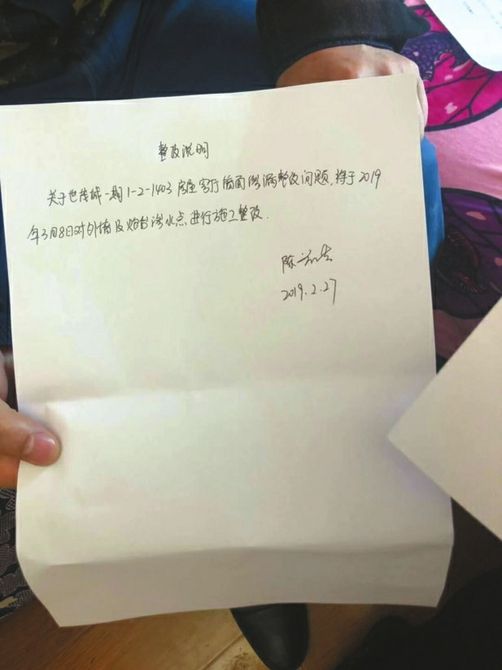 整改说明
关于世茂城一期1-2-1403房屋客厅墙面渗漏整改问题,将于2019
年3月8日对外墙及炮台渗水点进行施工整改.
陈
2019.2.27